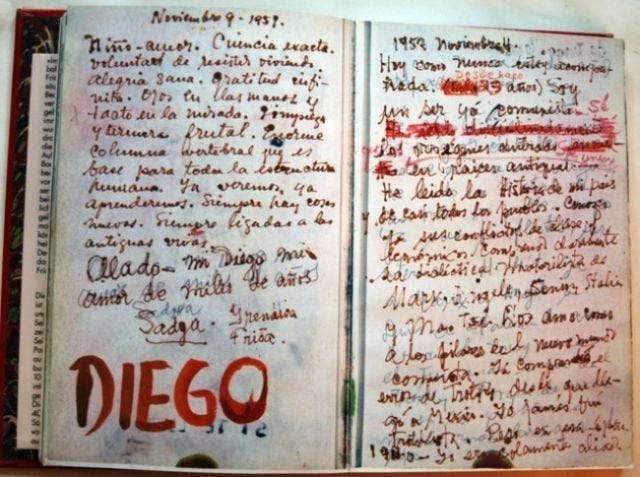 Noviembre 9 - 1951.
Niño-amor. Ciencia exacta.
voluntad de resistir viviendo
alegria sana. gratitud infi-
nita. Ojos en las manos y
tacto en la mirada. Limpieza
y ternura frutal. Enorme
columna vertebral que es
base para toda la estructura
humana. Ya veremos, ya
aprenderemos. Siempre hay cosas
nuevas. Siempre ligadas a las
antiguas vivas.
Alado - mi Diego mi
amor de miles de años
Sadga. Yrenáica
Frida.
DIEGO
1952 Noviembre 4
Hoy como nunca estoy acompa-
ñada. Desde hace
25 años) Soy
un ser ya comunista Sé
los origenes centrales
en raices antiguas.
He leido la Historia de mi pais
y de casi todos los pueblos. Conozco
ya sus conflictos de clase y
económicos. Comprendo claramente
la dialéctica materialista de
Marx, Engels, Lenin, Stalin
y Mao Tsé. Los amo como
a los pilares del nuevo mundo
comunista. Ya comprendí el
error de Trotsky desde que lle-
gó a México. Yo jamás fui
trotskista. Pero en esa época
1940 - Yo era solamente aliada